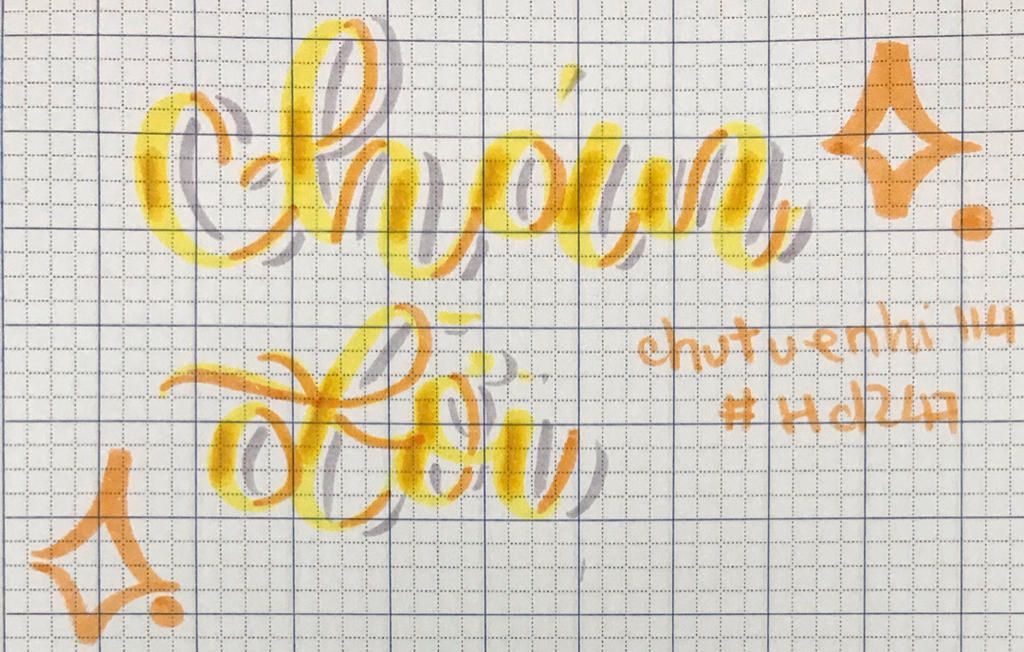 Choin
chutuenhi 114
# Hd247